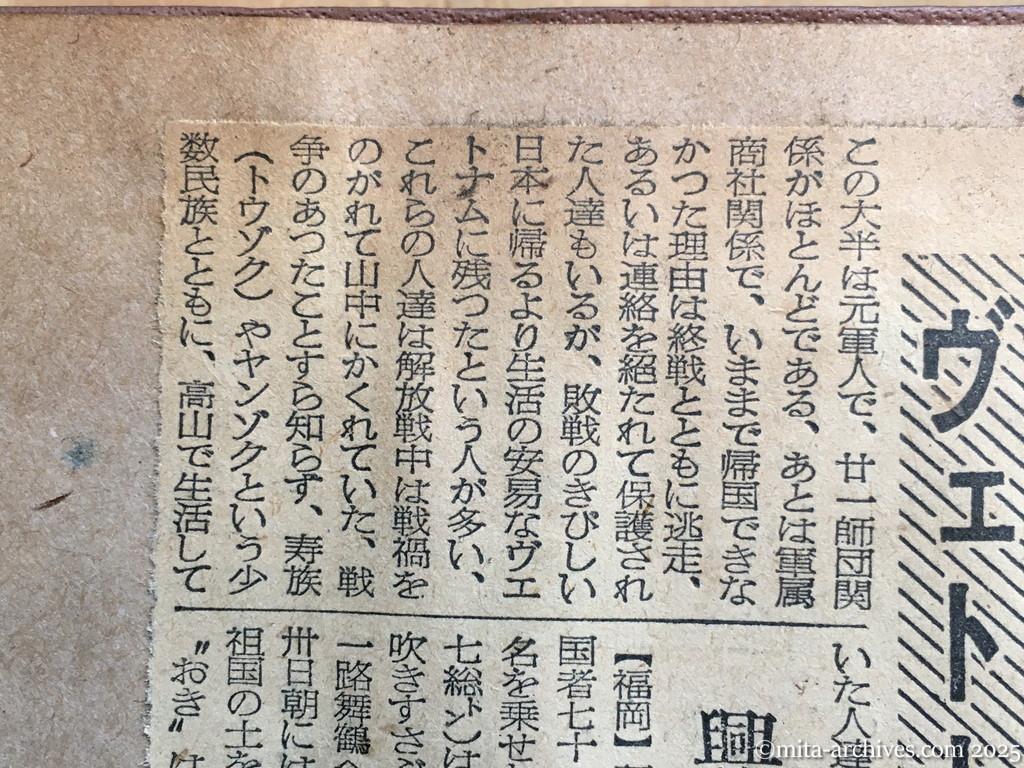 ヴェト
この大半は元軍人で、廿一師団関
係がほとんどである、あとは軍属
商社関係で、いままで帰国できな
かつた理由は終戦とともに逃走、
あるいは連絡を絶たれて保護され
た人達もいるが、敗戦のきびしい
日本に帰るより生活の安易なヴエ
トナムに残つたという人が多い、
これらの人達は解放戦中は戦禍を
のがれて山中にかくれていた、戦
争のあつたことすら知らず、寿族
(トウゾク)やヤンゾクという少
数民族とともに、高山で生活して
いた人達
興
【福岡】
国者七十
名を乗せ
七総㌧)は
吹きすさぶ
一路舞鶴へ
卅日朝には
祖国の土を
〃おき〃は
©mita-archives.com 2025